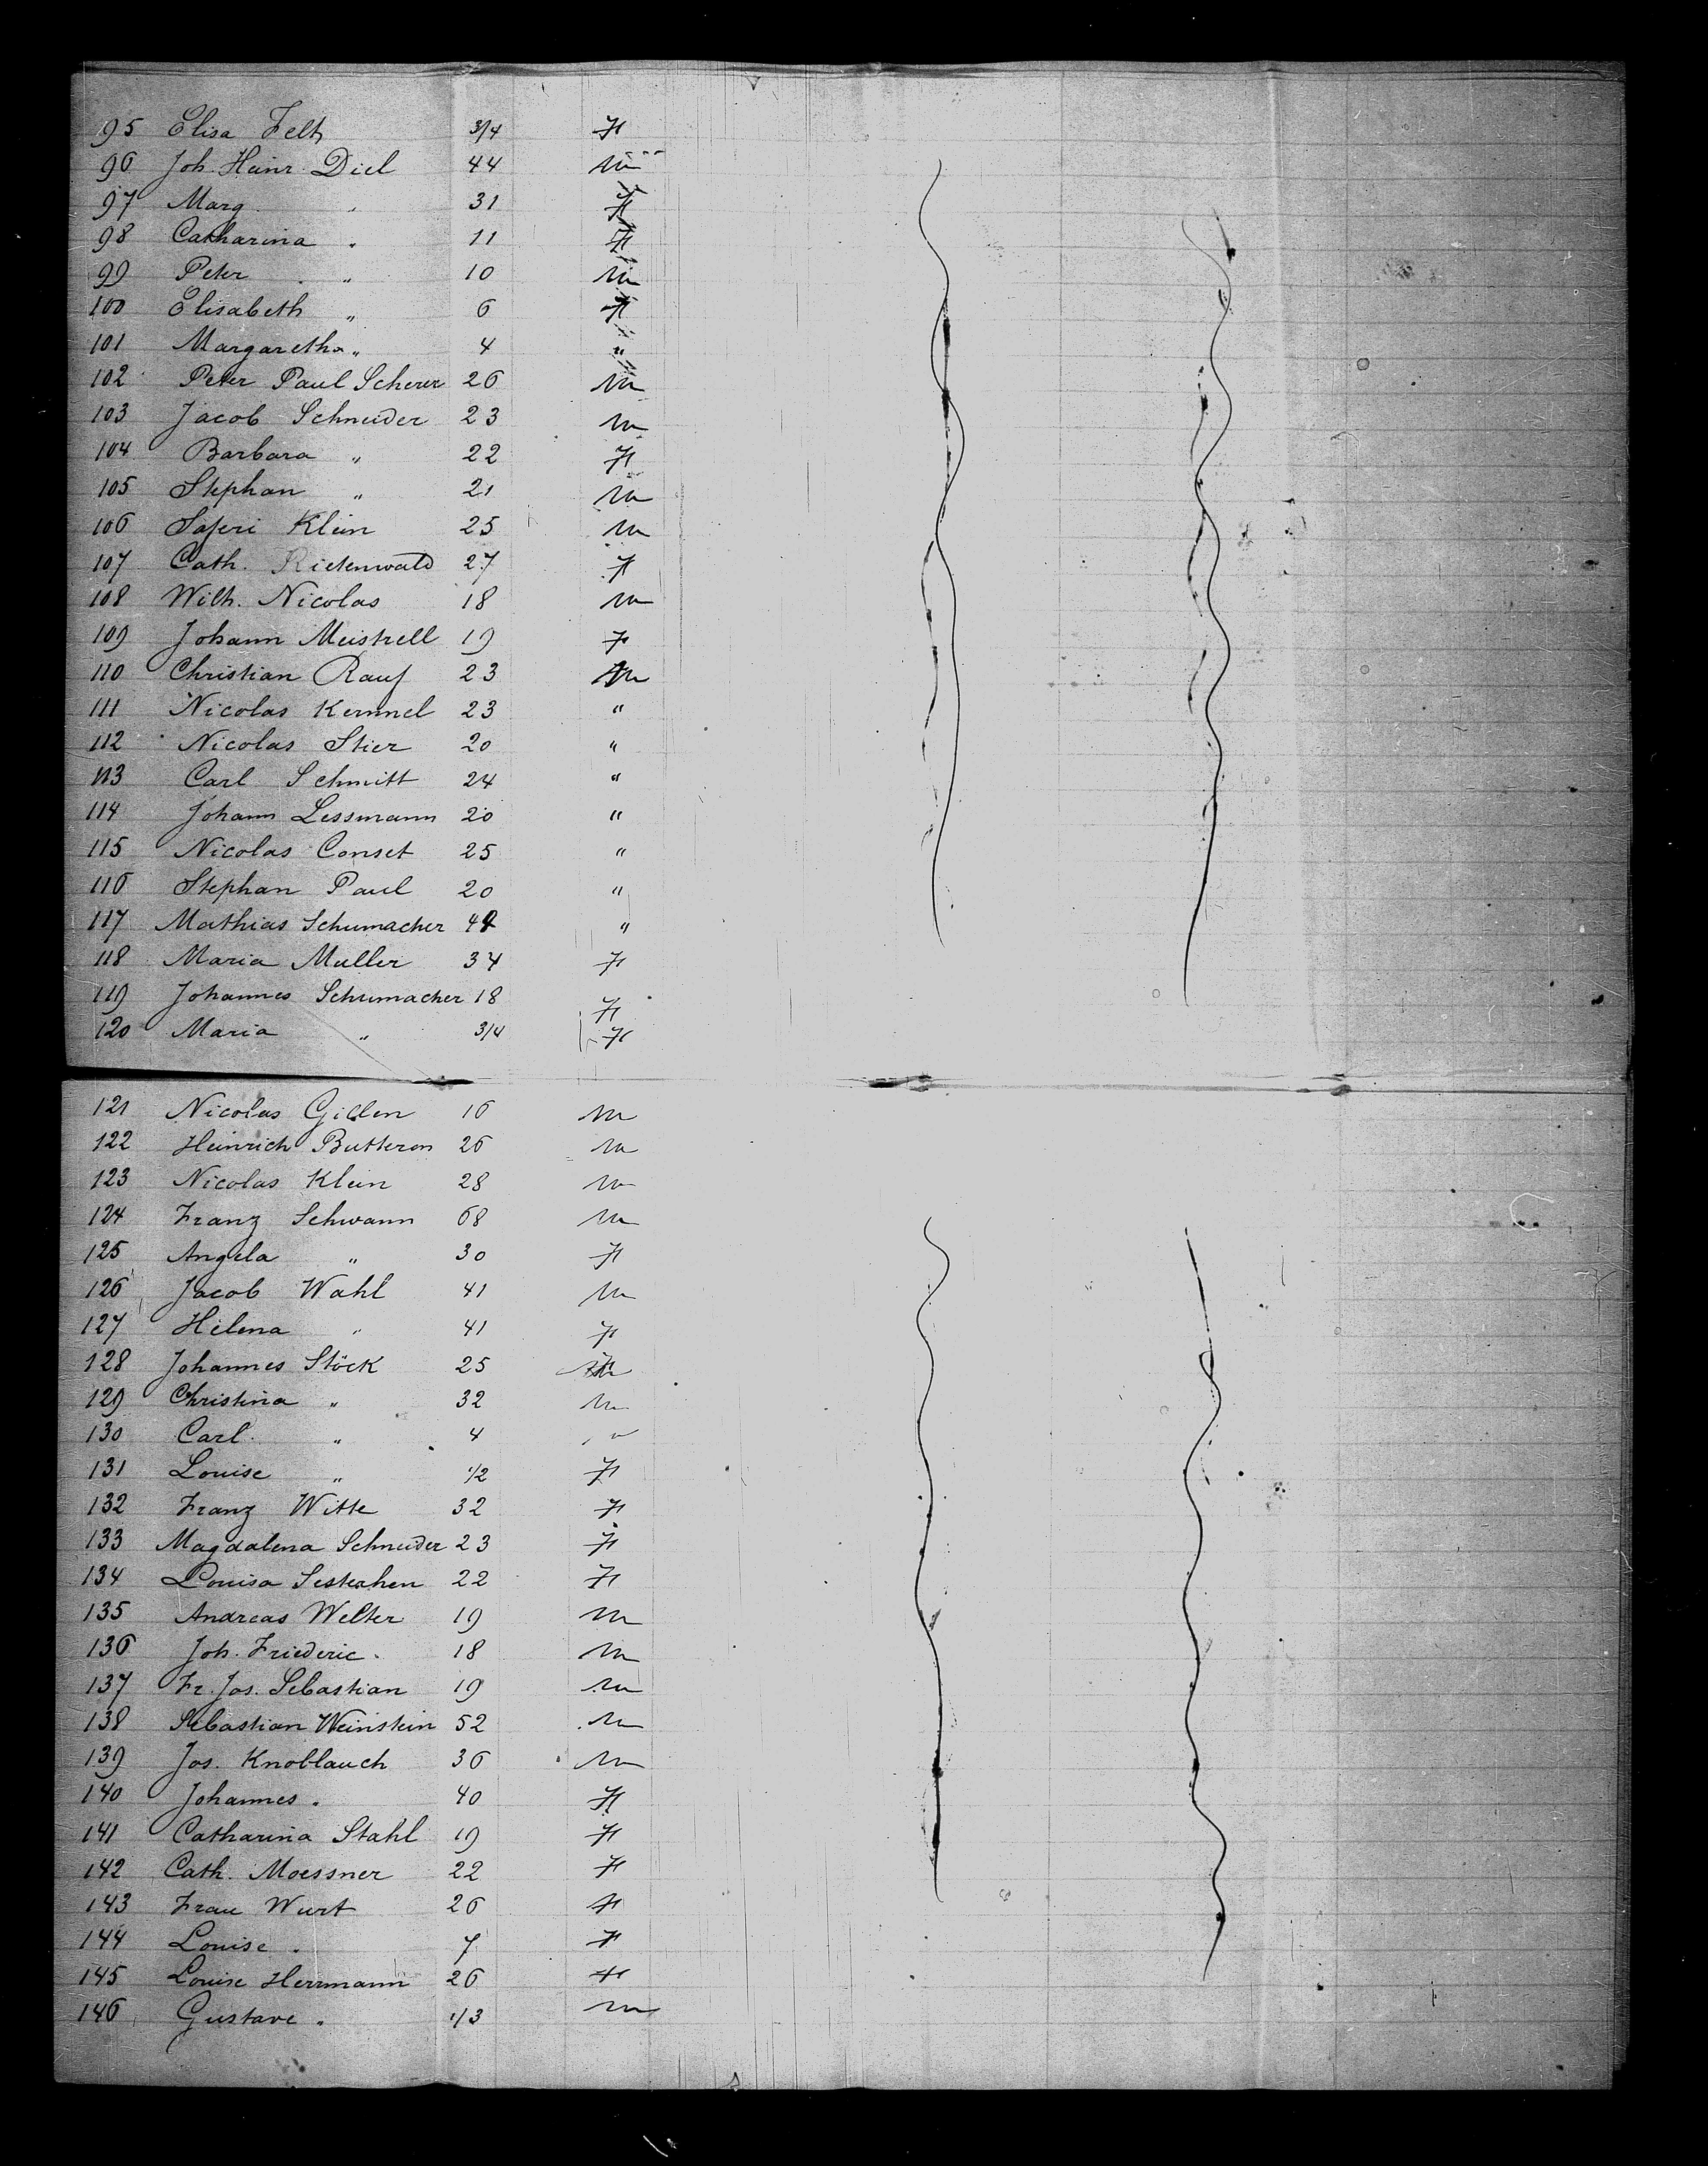 95 Elisa Felh 3/4 F
96 Joh. Heinr. Diel 44 M
97 Marg. " 31 F
98 Catharina " 11 F
99 Peter " 10 M
100 Elisabeth " 6 F
101 Margaretha " 4 "
102 Peter Paul Scherer 26 M
103 Jacob Schneider 23 M
104 Barbara " 22 F
105 Stephan " 21 M
106 Klein 25 M
107 Cath. Rietenwald 27 F
108 Wilh. Nicolas 18 M
109 Johann Meistrell 19 F
110 Christian Rauf 23 M
111 Nicolas Kemmel 23 "
112 Nicolas Stier 20 "
113 Carl Schmitt 24 "
114 Johann Lessmann 20 "
115 Nicolas Conset 25 "
116 Stephan Paul 20 "
117 Mathias Schumacher "
118 Maria Muller 34 F
119 Johannes Schumacher 18 F
120 Maria " 3/4 F
121 Nicolas Gillen 16 M
122 Heinrich Butteron 26 M
123 Nicolas Klein 28 M
124 Franz Schwann 68 M
125 Angela " 30 F
126 Jacob Wahl 41 M
127 Helena " 41 F
128 Johannes Stöck 25 M
129 Christina " 32 M
130 Carl " 4
131 Louise " 1/2 F
132 Franz Witte 32 F
133 Magdalena Schneider 23 F
134 Louisa 22 F
135 Andreas Welter 19 M
136 Joh. Friederic. 18 M
137 Fr. Jos. Sebastian 19 M
138 Sebastian Weinstein 52 M
139 Jos. Knoblauch 36 M
140 Johannes " 40 F
141 Catharina Stahl 19 F
142 Cath. Moessner 22 F
143 Frau Wurt 26 F
144 Louise " 7 F
145 Louise Herrmann 26 F
146 Gustave " 1/3 M